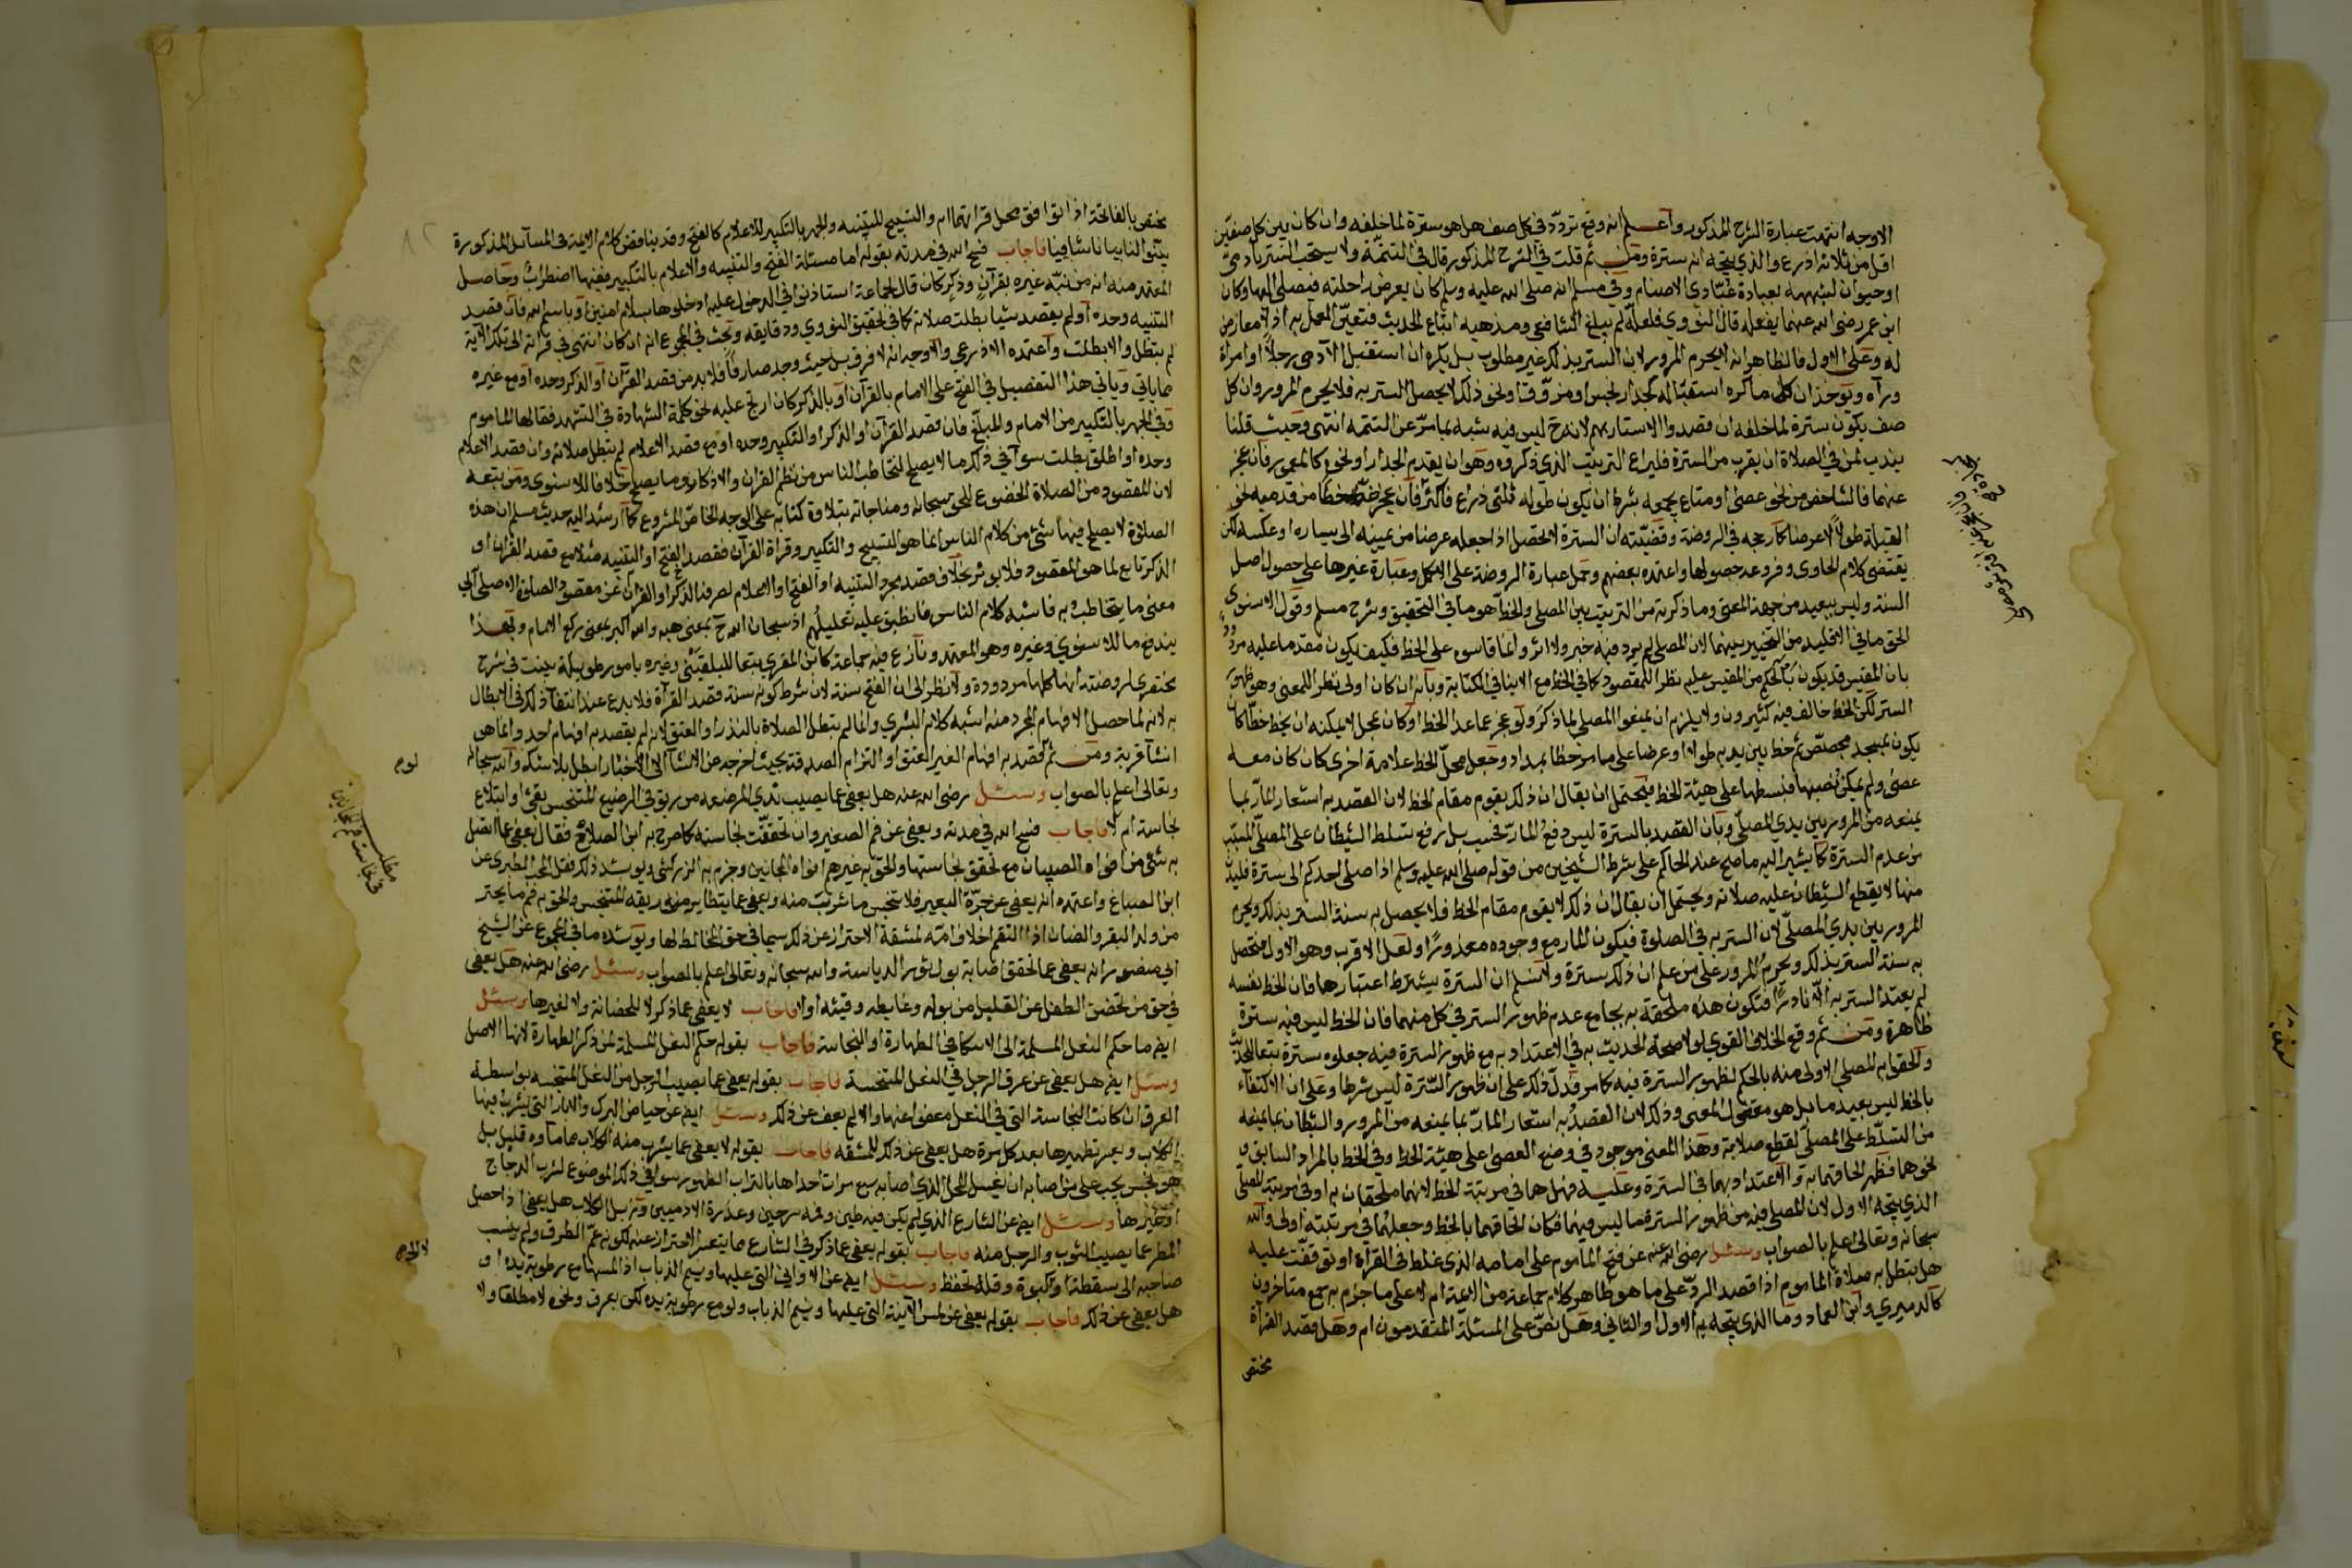 الاوجه انتهت عبارة الشرح المذكور واعلم انه وقع تردد في كل صف هل هو سترة لما خلفه وان كان بين كل صفين
اقل من ثلاثة اذرع والذي يتجه انه سترة ومن ثم قلت في الشرح المذكور قال في التتمة ولا يستحب الستر بآدمي
او حيوان لشبهه بعبادة عبادي الاصنام وفي مسلم انه صلى الله عليه وسلم كان يعرض راحلته فيصلي اليها وكان
ابن عمر رضي الله عنهما يفعله قال النووي فلعله لم يبلغ الشافعي ومذهبه اتباع الحديث فتعين العمل به اذ لا معارض
له وعلى الاول فالظاهر انه لا يحرم المرور لان الستر بذلك غير مطلوب بل يكره ان استقبل الآدمي رجلا او امراة
ورآه ويؤخذ ان كل ما كره استقباله كجدار نجس او مزوق ونحو ذلك لا يحصل الستر به فلا يحرم المرور وان كل
صف يكون سترة لما خلفه ان قصدوا الاستتار بهم لانه ح ليس فيه شبه بما مر عن التتمه انتهى وحيث قلنا
يندب لمن في الصلاة ان يقرب من السترة فليراع الترتيب الذي ذكروه وهو ان يقدم الجدار او نحوه كالعمود فان عجز
عنهما فالشاخص من نحو عصى او متاع يجمعه بشرط ان يكون طوله ثلثي ذراع فاكثر فان عجز خط خطا من قدميه نحو
القبلة طولا لا عرضا كما رجحه في الروضة وقضيته ان السترة لا تحصل اذا جعله عرضا من يمينه الى يساره او عكسه لكن
يقتضي كلام الحاوي وفروعه حصولها واعتمده بعضهم وحمل عبارة الروضة على الاكمل وعبارة غيرها على حصول اصل
السنة وليس ببعيد من جهة المعنى وما ذكرته من الترتيب بين المصلى والخط هو ما في التحقيق وشرح مسلم وقول الاسنوي
الحق ما في الاقليد من التخيير بينهما لان المصلى لم يرد فيه خبر ولا اثر وانما قاسوه على الخط فكيف يكون مقدما عليه مردود
بان المقيس قد يكون بالحكم من المقيس عليه نظرا للمقصود كما في الخط مع الاينا في الكتابة وبانه ان كان اولى نظر للمعنى وهو ظهور
الستر لكن الخط خالف فيه كثيرون ولا يلزم ان يمنعوا المصلى لما ذكر ولو عجز عما عدا الخط او كان بمحل لا يمكنه ان يخط خطا كان
يكون بمسجد مجصص ثم خط بين يديه طولا او عرضا على ما مر خطا بمداد وجعل محل الخط علامة اخرى كان كان معه
عصى ولم يمكن نصبها فبسطها على هيئة الخط فيحتمل ان يقال ان ذلك يقوم مقام الخط لان القصد به اشعار المار بما
يمنعه من المرور بين يدي المصلي وبان القصد بالسترة ليس دفع المار فحسب بل رفع تسلط الشيطان على المصلي المسبب
من عدم السترة كما يشير اليه ما صح عند الحاكم على شرط الشيخين من قوله صلى الله عليه وسلم اذا صلى احدكم الى سترة فليدن
منها لا يقطع الشيطان عليه صلاته ويحتمل ان يقال ان ذلك لا يقوم مقام الخط فلا يحصل به سنة الستر بذلك ويحرم
المرور بين يدي المصلي لان الستر به في الصلوة فيكون المار مع وجوده معذورا ولعل الاقرب وهو الاول فتحصل
به سنة الستر بذلك ويحرم المرور على من علم ان ذلك سترة ولا نسلم ان السترة يشترط اعتبارها فان الخط نفسه
لم يعتد الستر به الا نادرا فتكون هذه ملحقة به بجامع عدم ظهور الستر في كل منهما فان الخط ليس فيه سترة
ظاهرة ومن ثم وقع الخلاف القوي لولا صحة الحديث به في الاعتداد به مع ظهور السترة فيه جعلوه سترة تبعا للحديث
والحقوا به المصلى الاولى منه بالحكم لظهور السترة فيه كما مر فدل ذلك على ان ظهور السترة ليس شرطا وعلى ان الاكتفاء
بالخط ليس بعيد ما بل هو مقتضى المعنى وذلك لان القصد به اشعار المار بما يمنعه من المرور والشيطان بما يمنعه
من التسلط على المصلي لقطع صلاته وهذا المعنى موجود في وضع العصى على هيئة الخط وفي الخط بالمراد السابق و
نحوهما فظهر الحاقهما به والاعتداد بهما في السترة وعليه فهل هما في مرتبة الخط لانهما ملحقان به او في مرتبة المصلى
الذي يتجه الاول لان المصلى فيه من ظهور الستر فما ليس فيهما فكان الحاقهما بالخط وجعلهما في مرتبته اولى والله
سبحانه وتعالى اعلم بالصواب وسئل رضي الله عنه عن فتح الماموم على امامه الذي غلط في القرآة او توقفت عليه
هل تبطل به صلاة الماموم اذا قصد الرد على ما هو ظاهر كلام جماعة من الائمة ام لا على ما جزم به جمع متاخرون
كالدميري وابن العماد وما الذي يتجه به الاول او الثاني وهل نص على المسئلة المتقدمون ام وهل قصد القرآة
مختص
يختص بالفاتحة اذا توافق محل قراتهما ام والتسبيح للتنبيه والجهر بالتكبير للاعلام كالفتح وقد يناقض كلام الائمة في المسآئل المذكورة
بينوا لنا بيانا شافيا فاجاب فسح الله في مدته بقوله اما مسئلة الفتح والتنبيه والاعلام بالتكبير ففيها اضطراب وحاصل
المعتمد منه ان من نبه غيره بقرآن وذكر كان قال لجماعة استاذنوا في الدخول عليه ادخلوها بسلام امنين او باسم الله فان قصد
التنبيه وحده او لم يقصد شيا بطلت صلاته كما في تحقيق النووي ودقايقه وبحث في المجموع انه ان كان انتهى في قراته الى تلك الآية
لم تبطل والا بطلت واعتمده الاذرعي والاوجه انه لا فرق بل حيث وجد صارفا فلا بد من قصد القرآن او الذكر وحده او مع غيره
مما ياتي وياتي هذا التفصيل في الفتح على الامام بالقرآن او بالذكر كان ارتج عليه نحو كلمة الشهادة في التشهد فقالها الماموم
وفي الجهر بالتكبير من الامام والمبلغ فان قصد القرآن او الذكر او التكبير وحده او مع قصد الاعلام لم تبطل صلاته وان قصد الاعلام
وحده او اطلق بطلت سوآ في ذلك ما لا يصلح لتخاطب الناس من نظم القران والاذكار وما يصلح خلافا للاسنوي ومن تبعه
لان المقصود من الصلاة الخضوع للحق سبحانه ومناجاته بتلاوة كتابه على الوجه الخاص المشروع كما ارشد اليه حديث مسلم ان هذه
الصلاة لا يصلح فيها شئ من كلام الناس انما هو التسبيح والتكبير وقراة القرآن فقصد الفتح او التنبيه مثلا مع قصد القرآن او
الذكر تابع لما هو المقصود فلا يوثر بخلاف قصد مجرد التنبيه او الفتح او الاعلام لصرفنا الذكر او القرآن عن مقصود الصلوة الاصلي الى
معنى ما يتخاطب به فاشبه كلام الناس فانطبق عليه تعليلهم اذ سبحان الله ح بمعنى هبه والله اكبر بمعنى ركع الامام وبهذا
يندفع ما للاسنوي وغيره وهو المعتمد ونازع فيه جماعة كابن المقري تبعا للبلقيني وغيره بامور طويلة بينت في شرح
مختصري لروضته انها كلها مردودة ولا نظر الى ان الفتح سنة لان شرط كونه سنة قصد القرآة فلا بدع عند انتفآ ذلك في الابطال
به لانه لما حصل الافهام المجرد منه اشبه كلام البشري وانما لم تبطل الصلاة بالنذر او العتق لانه لم يقصد به افهام احد وانما هو
انشآ قربة ومن ثم لو قصد به افهام الغير العتق او التزام الصدقة بحيث اخرجه عن الانشآ الى الاخبار ابطل بلا شك والله سبحانه
وتعالى اعلم بالصواب وسئل رضي الله عنه هل يعفى عما يصيب ثدي المرضعه من ريق في الرضيع المتنجس بقئ او ابتلاع
نجاسة ام لا فاجاب فسح الله في مدته ويعفى عن فم الصغير وان تحققت نجاسته كما صرح به ابن الصلاح فقال يعفى عما اتصل
به شئ من افواه الصبيان مع تحقق نجاستها والحق به غيرهم افواه المجانين وجزم به الزركشي ويويد ذلك نقل المحب الطبري عن
ابن الصباغ واعتمده انه يعفى عن جرة البعير فلا تنجس ما شرب منه ويعفى عما يتطاير من ريقه المتنجس والحق به فم ما يجتر
من ولد البقر والضان اذا التقم اخلاف امه لمشقة الاحتراز عن ذلك سيما في حق المخالط لها ويؤيده ما في المجموع عن الشيخ
ابي منصور انه يعفى عما تحقق اصابة بول ثور الدياسة والله سبحانه وتعالى اعلم بالصواب وسئل رضي الله عنه هل يعفى
في حق من تحضن الطفل عن القليل من بوله وغايطه وقيئه او لا فاجاب لا يعفى عما ذكر لا للحضانة ولا لغيرها وسئل
ايض ما حكم النعل المسلمة الى الاسكافي الطهارة او النجاسة فاجاب بقوله حكم النعل المسلمة لمن ذكر الطهارة لانها الاصل
وسئل ايض هل يعفى عن عرق الرجل في النعل المتنجسة فاجاب بقوله يعفى عما يصيب الرجل من النعل المتنجسه بواسطة
العرق ان كانت النجاسة التي في النعل معفوا عنها والا لم يعف عن ذلك وسئل ايض عن حياض البرك والابار التي يشرب فيها
الكلاب ويعسر تطهيرها بعد كل مرة هل يعفى عن ذلك للمشقه فاجاب بقوله لا يعفى عما يشرب منه الكلاب مما مآوه قليل بل
هو نجس يجب على من اصابه ان يغسل المحل الذي اصابه سبع مرات احداها بالتراب الطهور سوا في ذلك الموضوع لشرب الدجاج
او غيرها وسئل ايض عن الشارع الذي لم يكن فيه طين وفيه سرجين وعذرة الادميين وزبل الكلاب هل يعفى اذا حصل
المطر عما يصيب الثوب والرجل منه فاجاب بقوله يعفى عما ذكر في الشارع مما يتعسر الاحتراز عنه لكونه عم الطرق ولم ينسب
صاحبه الى سقطة او كبوة وقلة تحفظ وسئل ايض عن الاواني التي عليها ونيم الذباب اذا المسها مع رطوبة يده او
هل يعفى عن ذلك فاجاب بقوله يعفى عن لمس الآنية التي عليها ونيم الذباب ولو مع رطوبة يده لكن بعرق ونحوه لا مطلقا ولا
مطلب